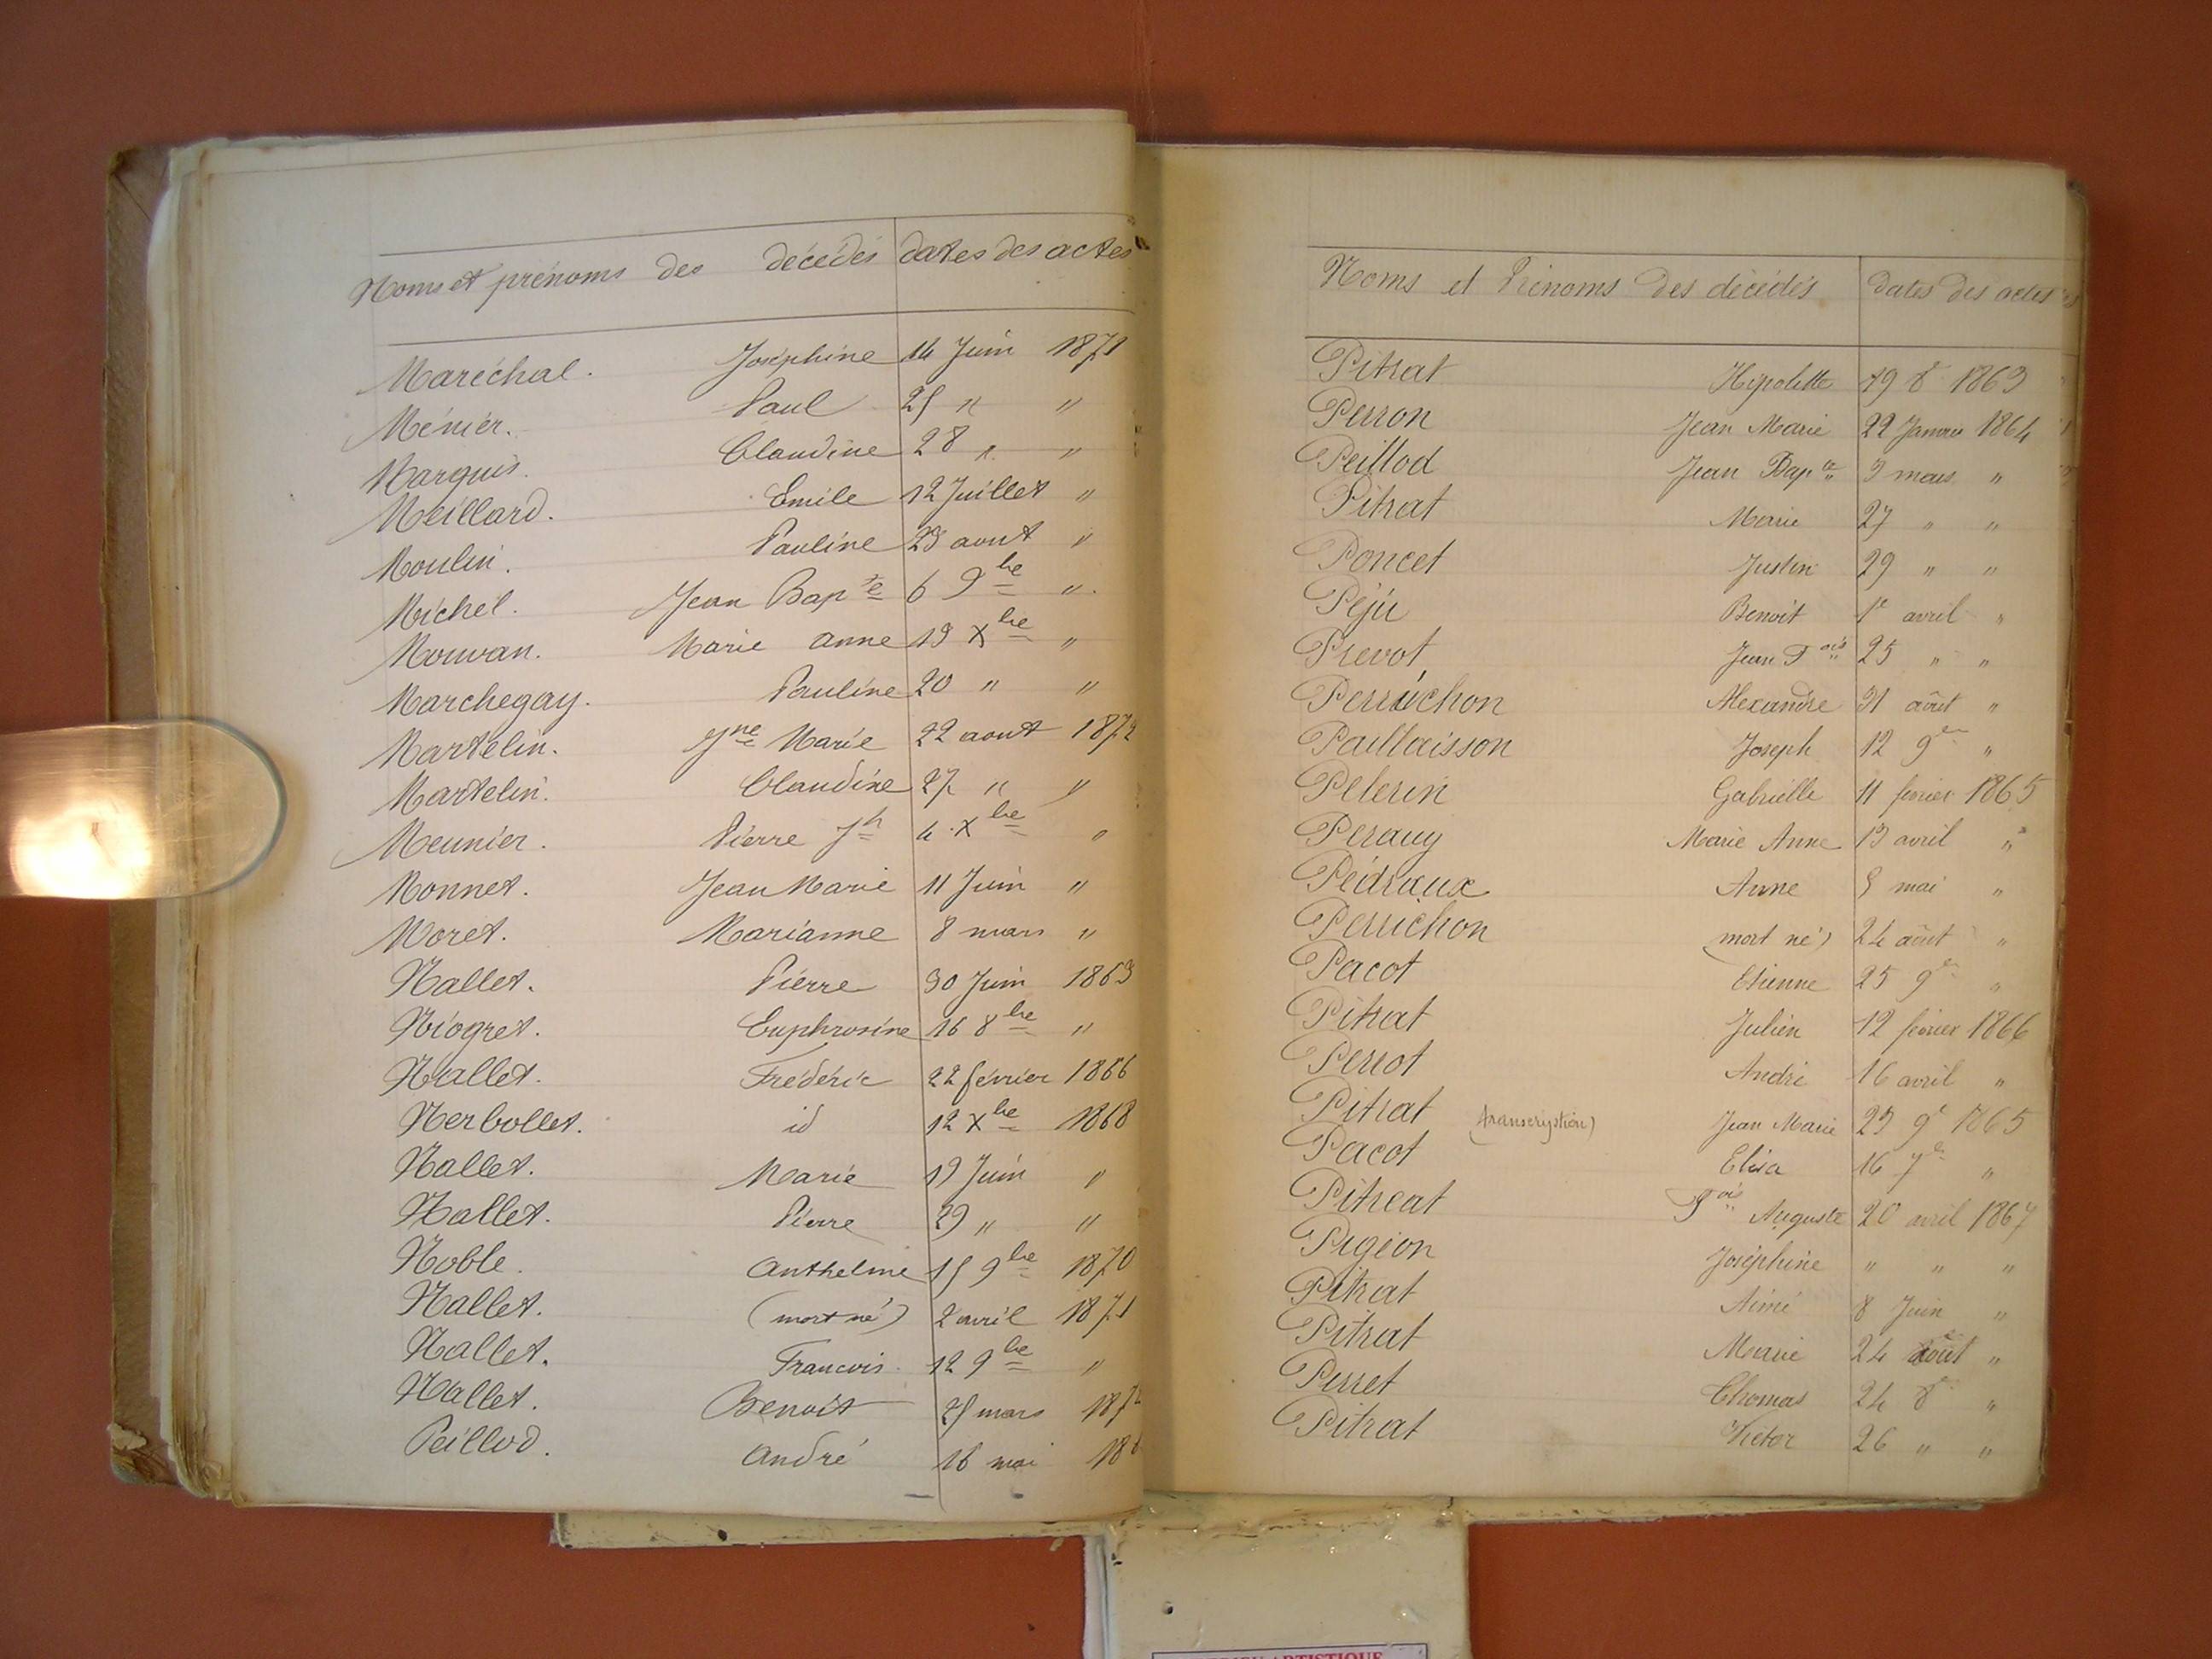 Noms et prénoms des décédés dates des actes
Maréchal. Joséphine 14 Juin 1871
Ménier. Paul 25 " "
Marquis. Claudine 28 " "
Meillard. Emile 12 Juillet "
Moulin. Pauline 23 aout "
Michel. Jean Bapte 6 9bre "
Mouvan. Marie anne 13 Xbre "
Marchegay. Pauline 20 " "
Martelin. Jne Marie 22 aout 1872
Martelin. Claudine 27 " "
Meunier. Pierre Jh 4 Xbre "
Monnet. Jean Marie 11 Juin "
Moret. Marianne 8 mars "
Nallet. Pierre 30 Juin 1863
Niogret. Euphrosine 16 8bre "
Nallet. Fréderic 22 février 1866
Nerbollet. id 12 Xbre 1868
Nallet. Marie 19 Juin "
Nallet. Pierre 29 " "
Noble. Anthelme 15 9bre 1870
Nallet. (mort né) 2 avril 1871
Nallet. Francois 12 9bre "
Nallet. Benoit 25 mars 187
Peillod. André 16 mai 18
Noms et Prénoms des décédés dates des actes
Pitrat Hipolitte 19 8 1863
Perron Jean Marie 22 Janvier 1864
Peillod Jean Bapte 3 mars "
Pitrat Marie 27 " "
Poncet Justin 29 " "
Péju Benoit 1e avril "
Prevot Jean Fois 25 " "
Perruchon Alexandre 31 août "
Paillaisson Joseph 12 9e "
Pelerin Gabrielle 11 fevrier 1865
Perauy Marie Anne 13 avril "
Pédraux Anne 5 mai "
Perrichon (mort né) 24 août "
Pacot Etienne 25 9e "
Pitrat Julien 12 février 1866
Perrot André 16 avril "
Pitrat (transcription) Jean Marie 23 9e 1865
Pacot Elisa 16 7e "
Pitreat Fois Auguste 20 avril 1867
Pigeon Joséphine " " "
Pitrat Aimé 8 Juin "
Pitrat Marie 24 août "
Perret Thomas 24 8 "
Pitrat Victor 26 " "
ARTISTIQUE